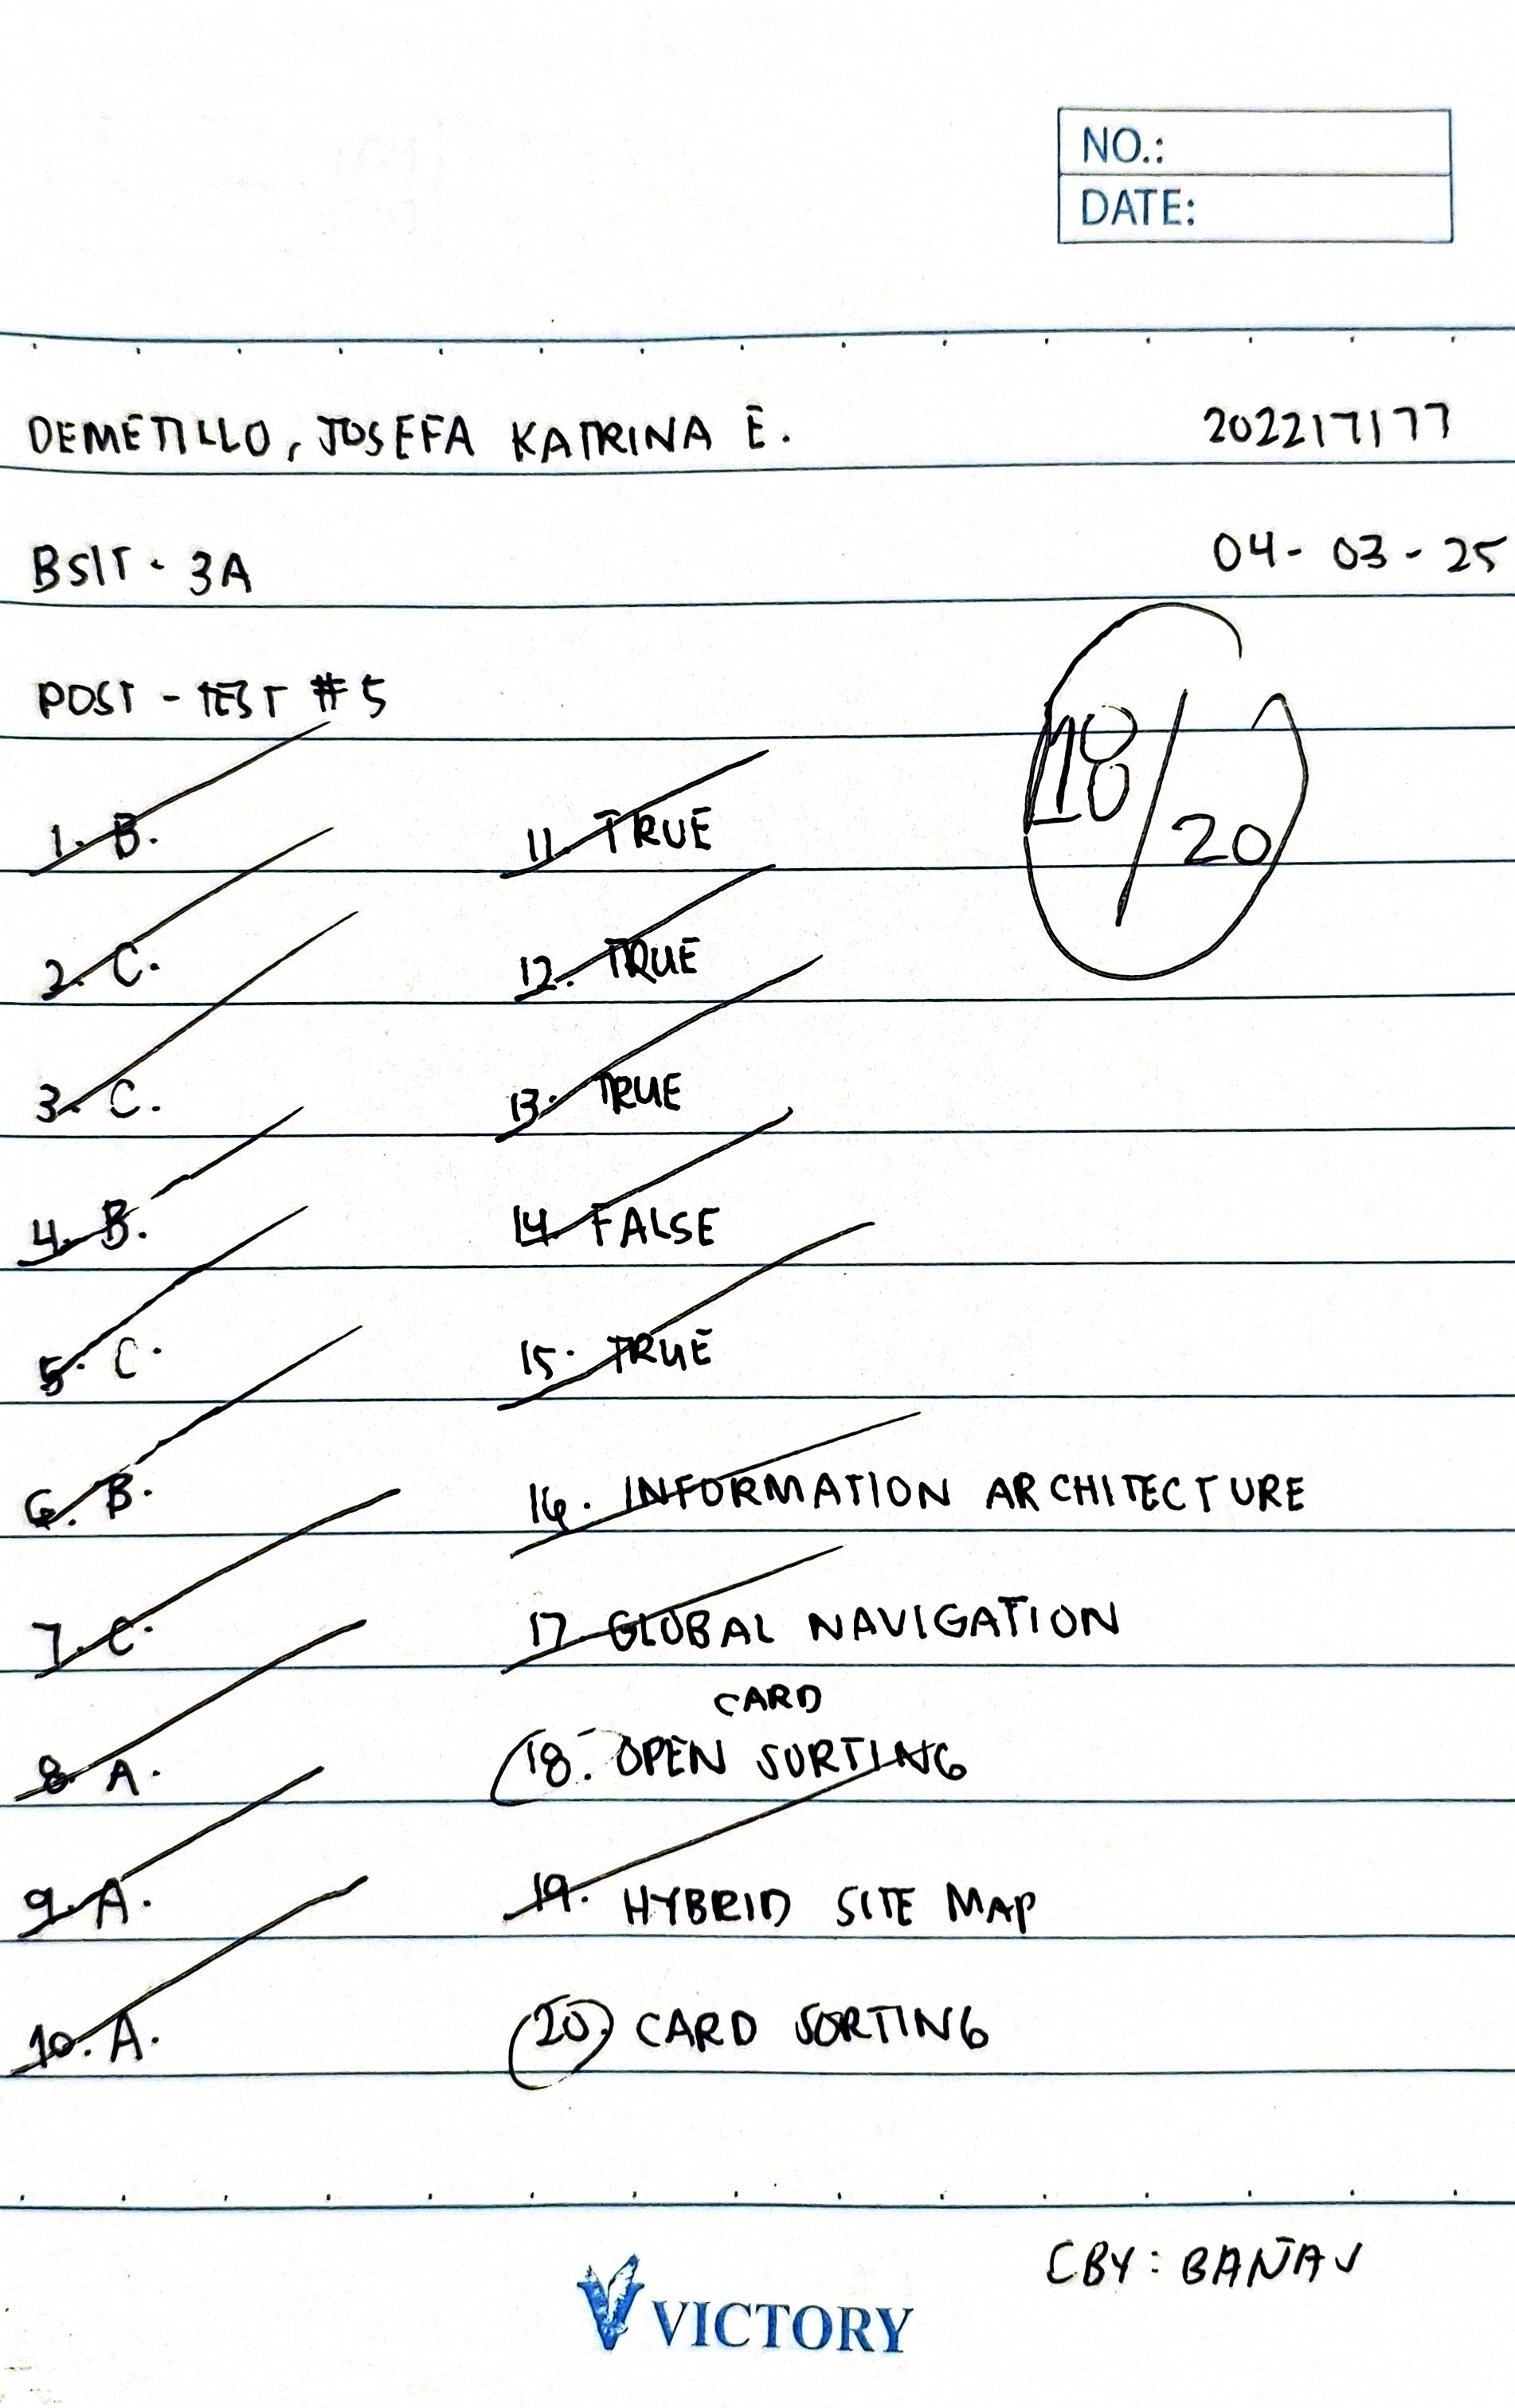 NO.:
DATE:
DEMETILLO, JOSEFA KATRINA E. 202217177
BSIT - 3A 04-03-25
POST-TEST #5
18/20
1. B.
2. C.
3. C.
4. B.
5. C.
6. B.
7. C.
8. A.
9. A.
10. A.
11. TRUE
12. TRUE
13. TRUE
14. FALSE
15. TRUE
16. INFORMATION ARCHITECTURE
17. GLOBAL NAVIGATION
CARD
18. OPEN SORTING
19. HYBRID SITE MAP
20. CARD SORTING
CBY:
VICTORY